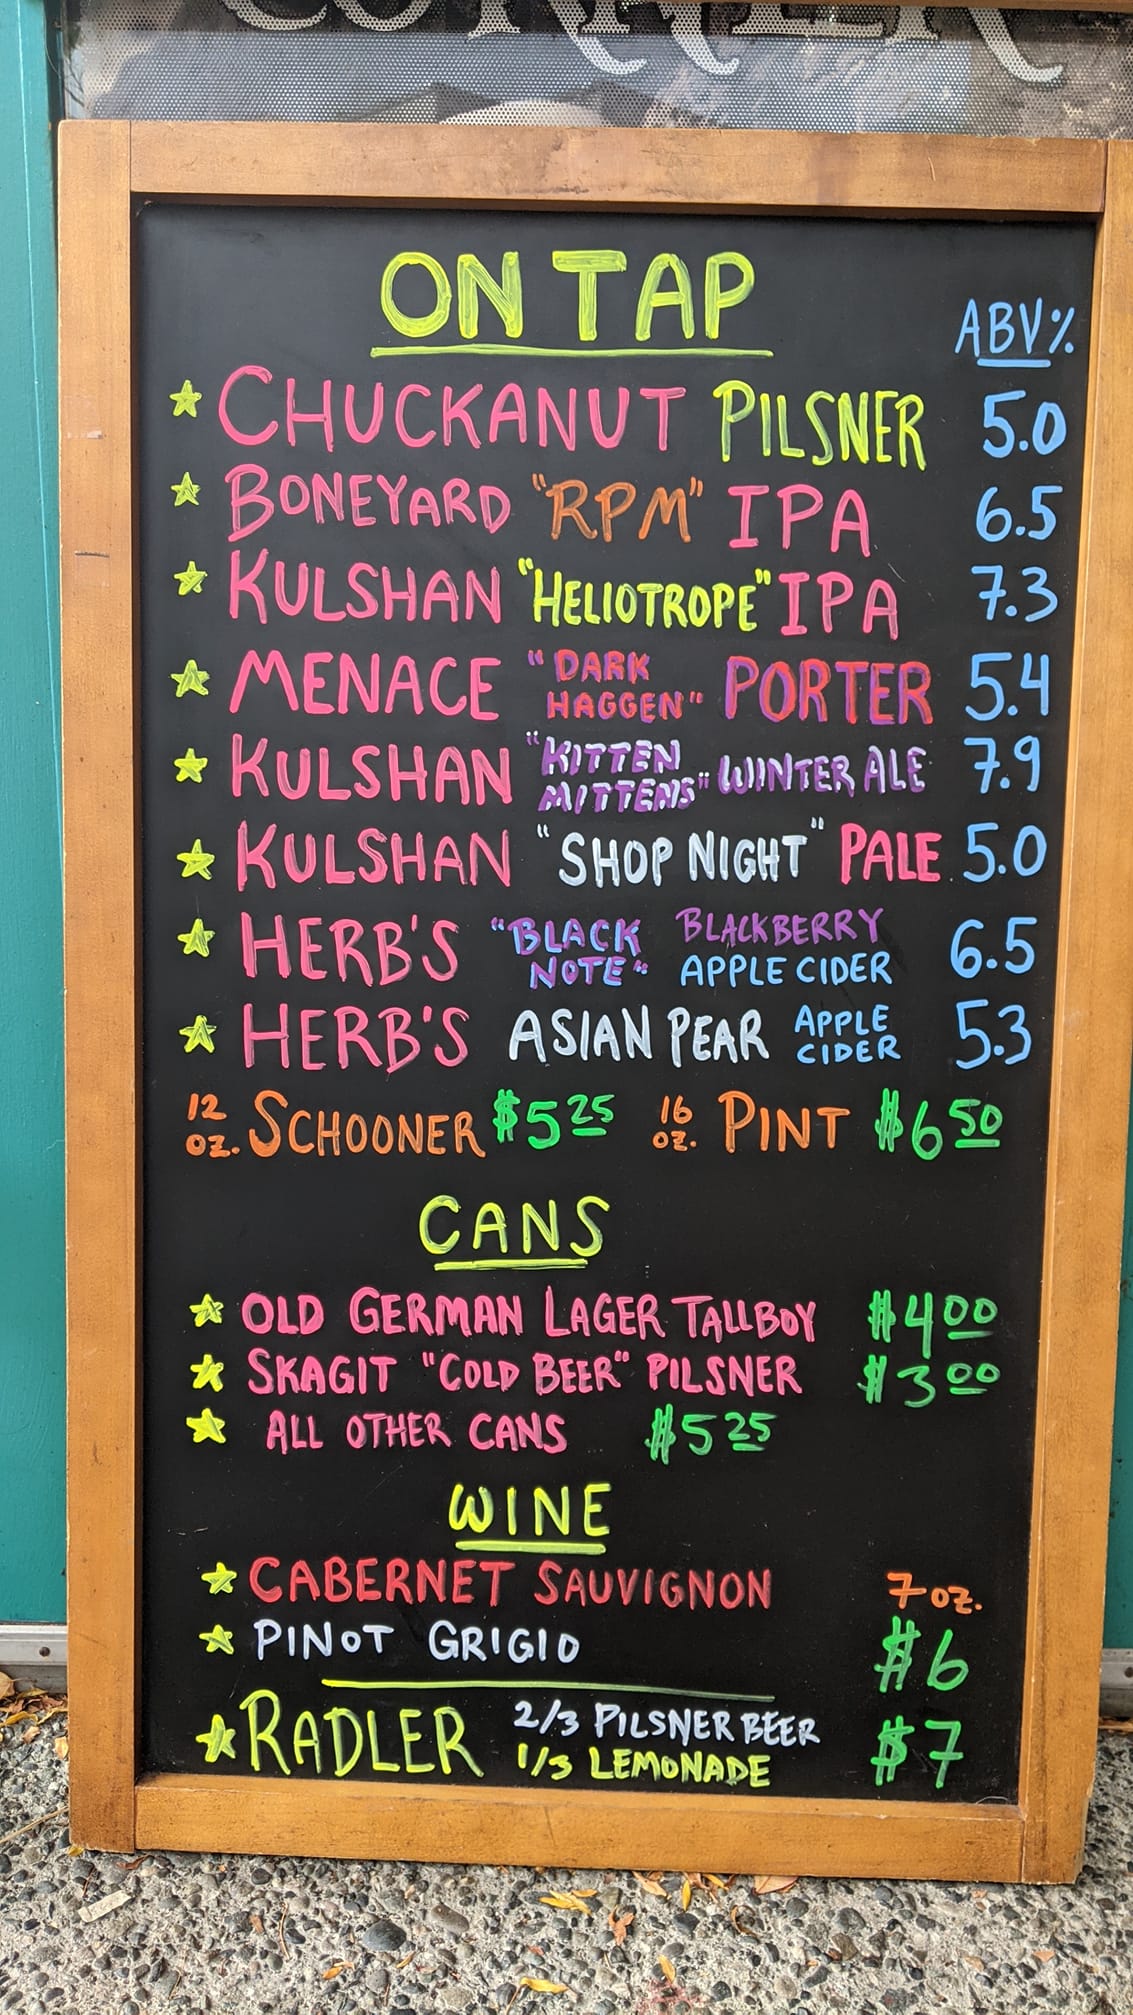 CORNER
ON TAP
ABV%
CHUCKANUT PILSNER 5.0
BONEYARD "RPM" IPA 6.5
KULSHAN "HELIOTROPE" IPA 7.3
MENACE "DARK HAGGEN" PORTER 5.4
KULSHAN "KITTEN MITTENS" WINTER ALE 7.9
KULSHAN "SHOP NIGHT" PALE 5.0
HERB'S "BLACK NOTE" BLACKBERRY APPLE CIDER 6.5
HERB'S ASIAN PEAR APPLE CIDER 5.3
12 oz. SCHOONER $5 25 16 oz. PINT $6 50
CANS
OLD GERMAN LAGER TALLBOY $4 00
SKAGIT "COLD BEER" PILSNER $3 00
ALL OTHER CANS $5 25
WINE
CABERNET SAUVIGNON 7 oz.
PINOT GRIGIO $6
RADLER 2/3 PILSNER BEER $7
1/3 LEMONADE